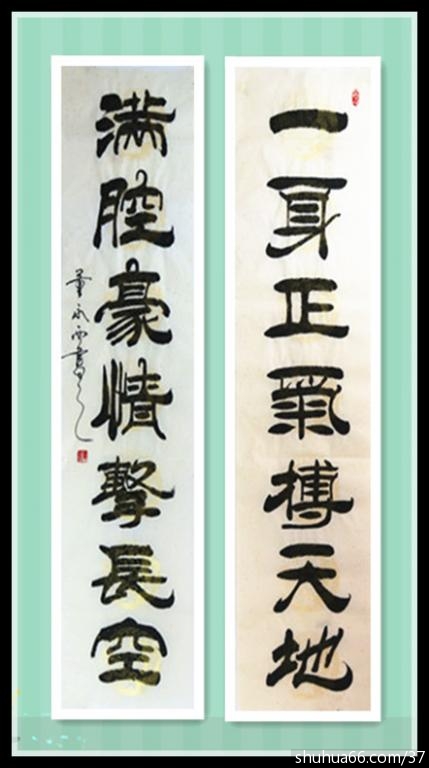 一身正氣搏天地
滿腔豪情擊長空
shuhua66.com/37